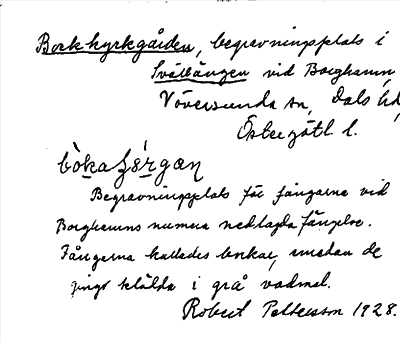 Bockkyrkgården, begravningsplats i
Svältängen vid Borghamn,
Väversunda sn, Dals hd,
Östergötl. l.
Begravningsplats för fångarna vid
Borghamns numera nedlagda fängelse.
Fångarna kallades bockar, emedan de
gingo klädda i grå vadmal.
Robert Pettersson 1928.